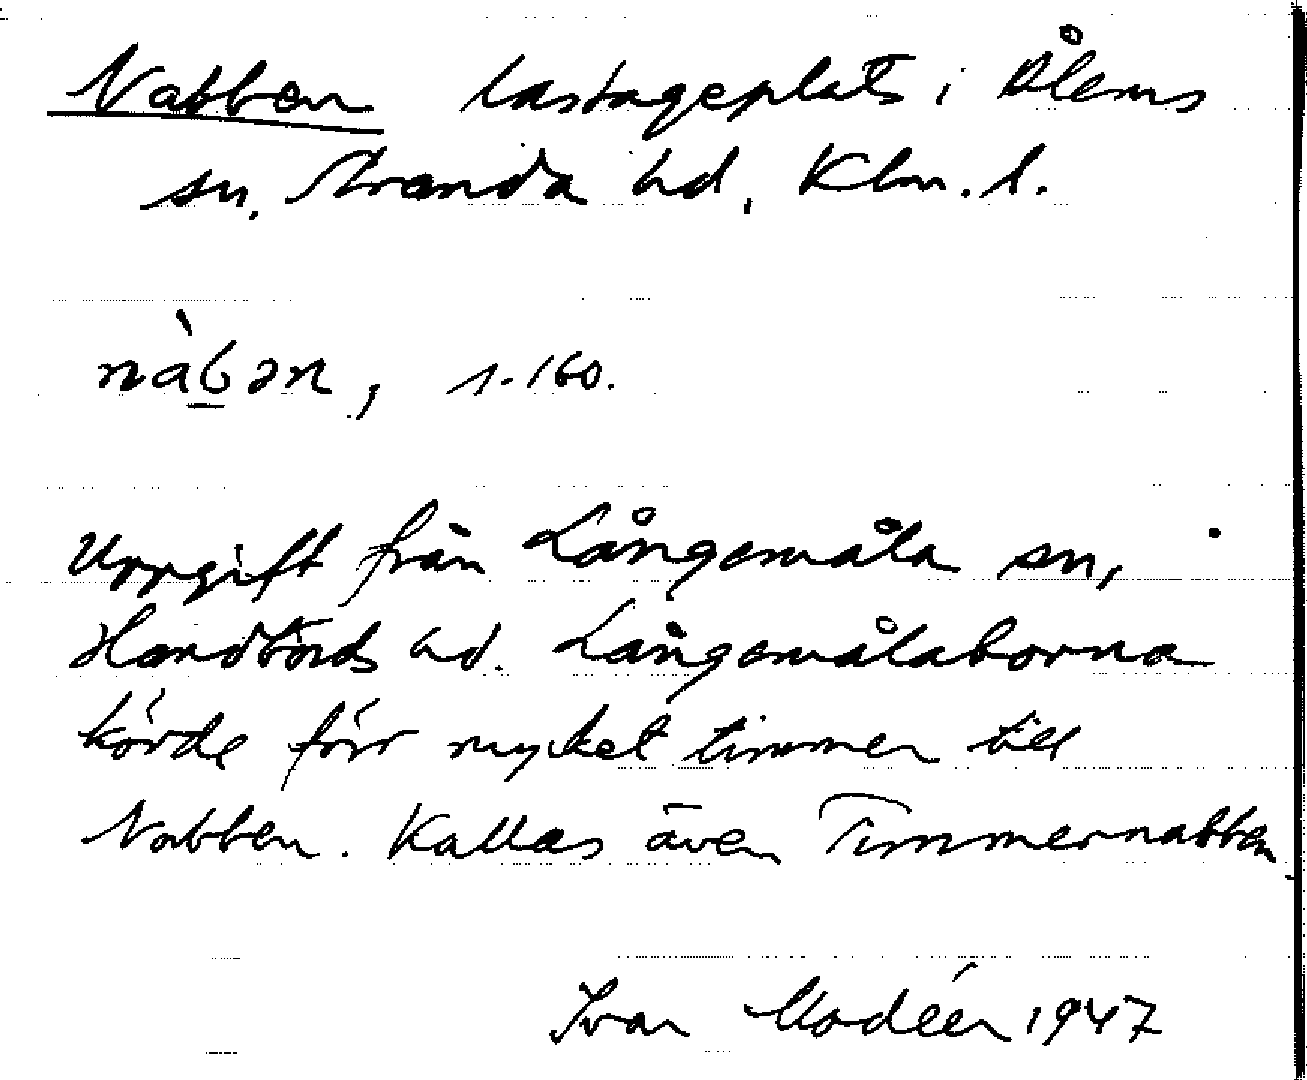 Nabben lastageplats i Ålems
sn. Stranda hd, Klm. l.
nàb̲ən, s. 160.
Uppgift från Långemåla sn,
Handbörds hd. Långemålaborna
körde förr mycket timmer till
Nabben. Kallas även Timmernabben.
Ivar Modéer 1947